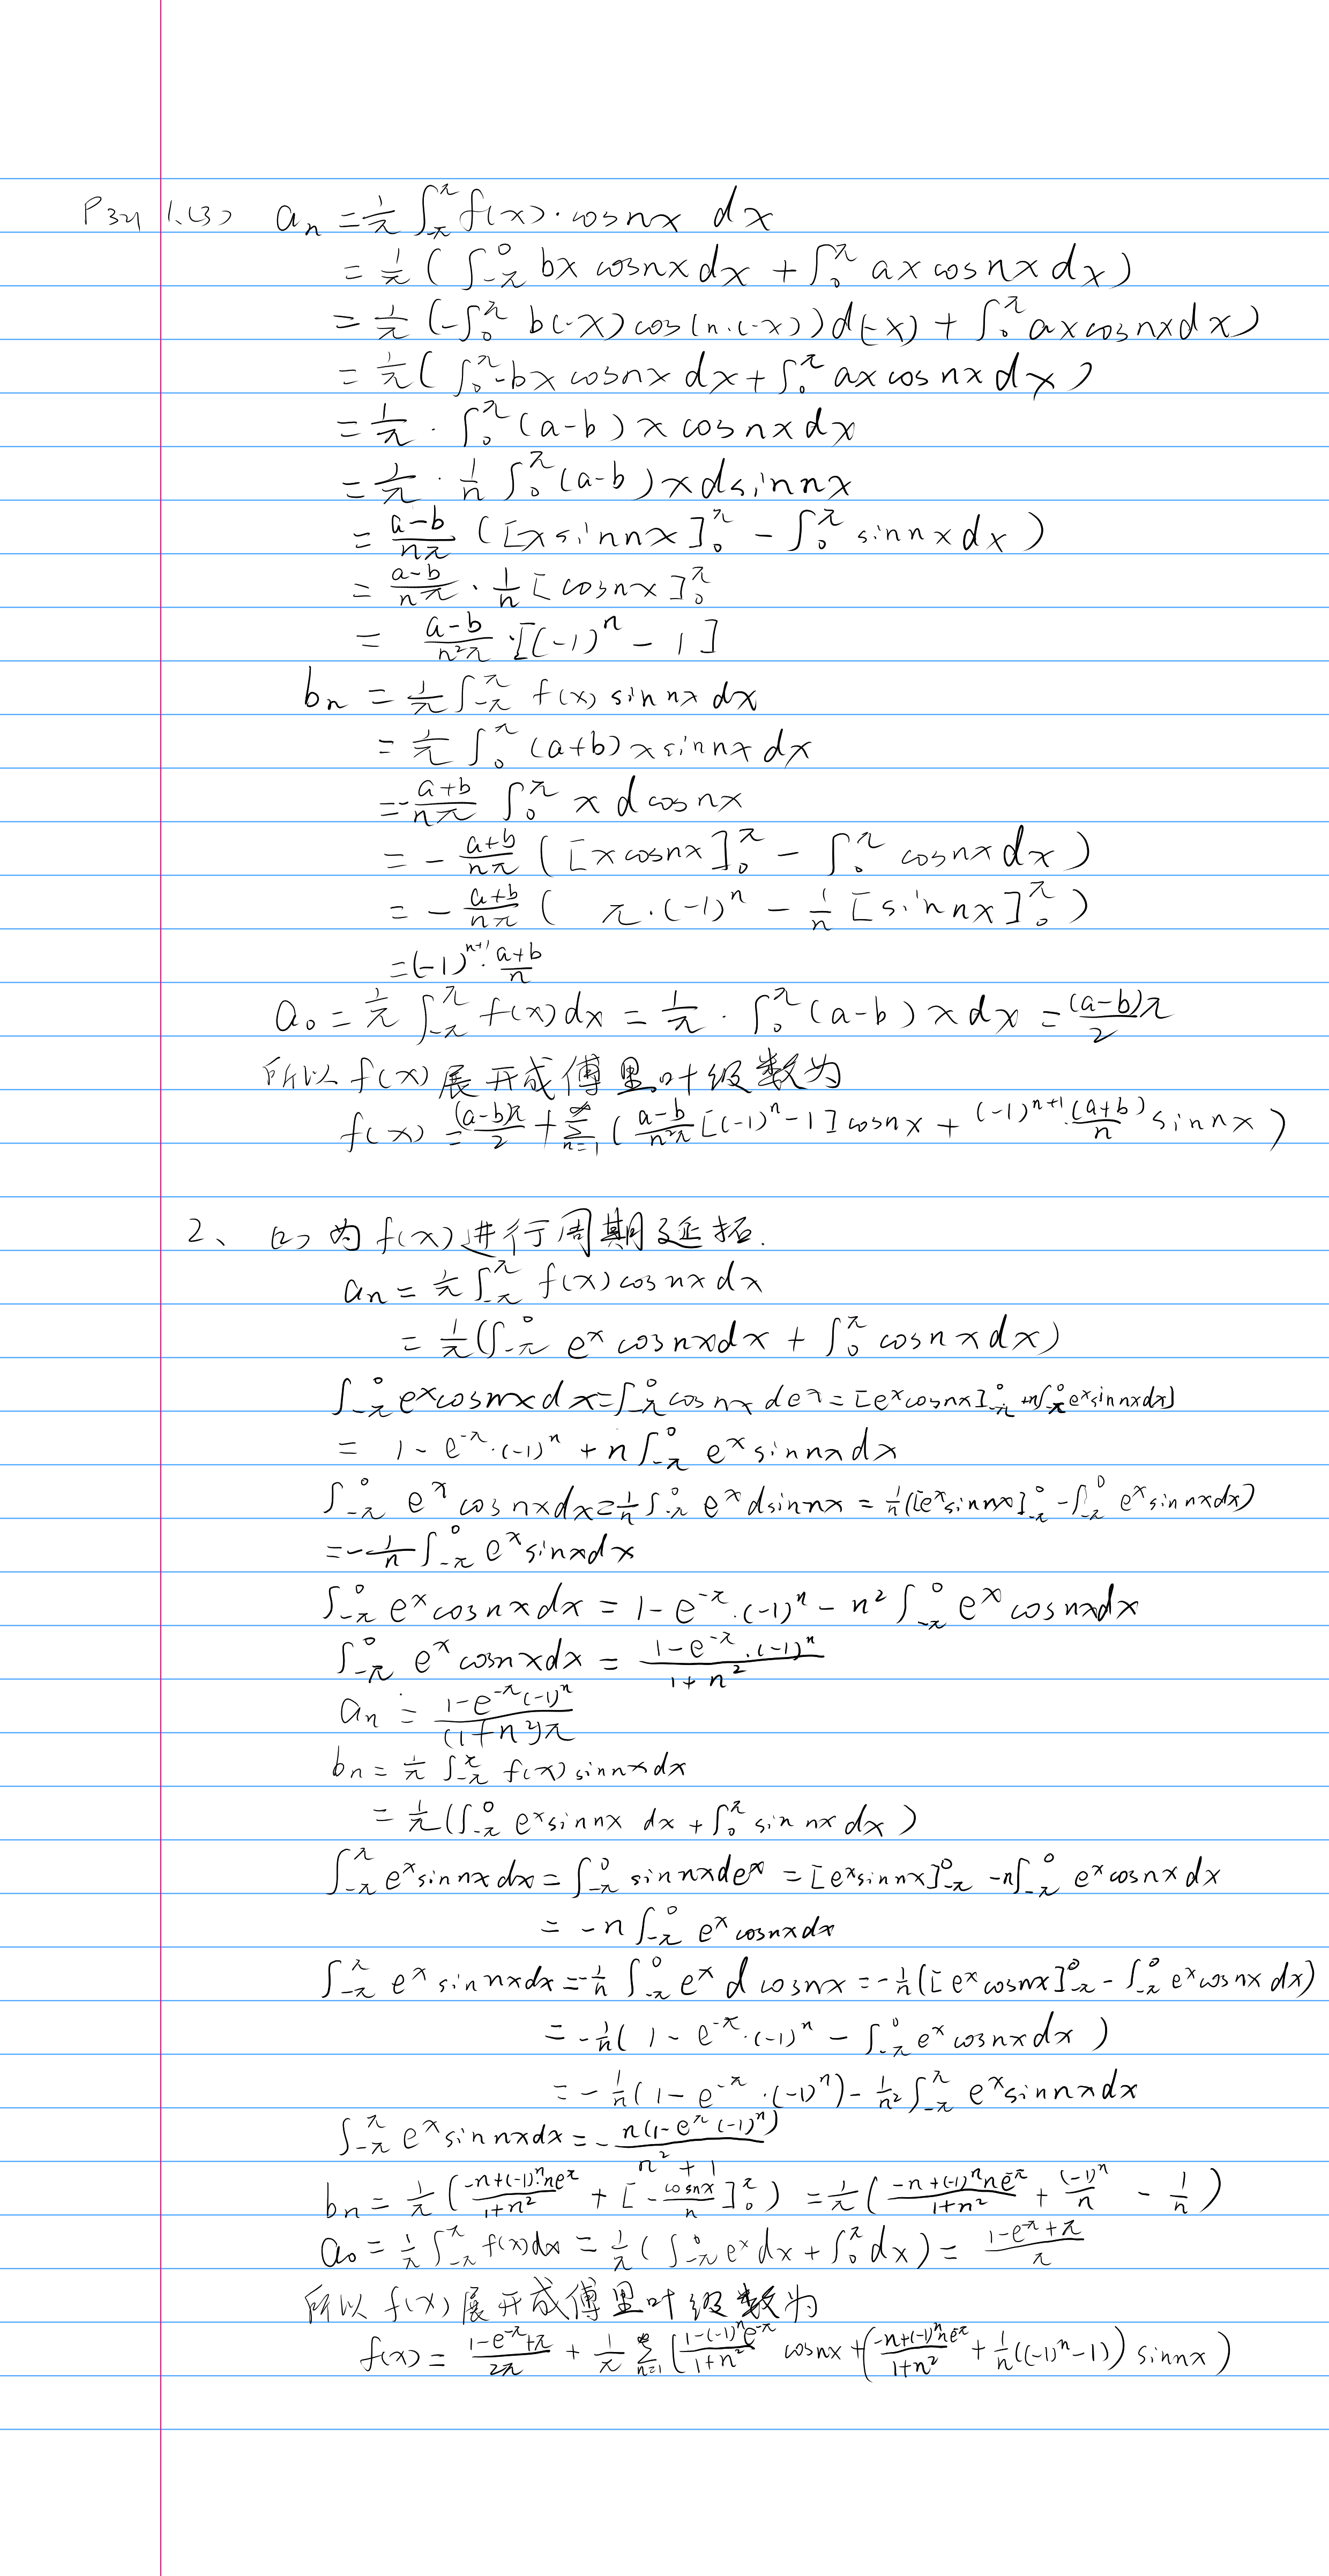 P321 1.(3) aₙ = 1/π ∫_{-π}^{π} f(x)·cosnx dx
= 1/π ( ∫_{-π}^{0} bx cosnx dx + ∫_0^π ax cosnx dx )
= 1/π (-∫_0^π b(-x) cos(n·(-x)) d(-x) + ∫_0^π ax cosnx dx )
= 1/π ( ∫_0^π -bx cosnx dx + ∫_0^π ax cosnx dx )
= 1/π · ∫_0^π (a-b) x cosnx dx
= 1/π · 1/n ∫_0^π (a-b) x dsinnx
= (a-b)/(nπ) ( [x sinnx]_0^π - ∫_0^π sinnx dx )
= (a-b)/(nπ) · 1/n [cosnx]_0^π
= (a-b)/(n²π) ·[(-1)^n - 1]
bₙ = 1/π ∫_{-π}^{π} f(x) sinnx dx
= 1/π ∫_0^π (a+b) x sinnx dx
= -(a+b)/(nπ) ∫_0^π x d cosnx
= -(a+b)/(nπ) ( [x cosnx]_0^π - ∫_0^π cosnx dx )
= -(a+b)/(nπ) ( π·(-1)^n - 1/n [sinnx]_0^π )
= (-1)^{n+1}·(a+b)/n
a₀ = 1/π ∫_{-π}^{π} f(x)dx = 1/π · ∫_0^π (a-b) x dx = (a-b)π/2
所以 f(x) 展开成傅里叶级数为
f(x) = (a-b)π/2 + ∑_{n=1}^∞ ( (a-b)/(n²π) [(-1)^n-1] cosnx + (-1)^{n+1}·(a+b)/n sinnx )
2、 (2) 为 f(x) 进行周期延拓.
aₙ = 1/π ∫_{-π}^{π} f(x) cosnx dx
= 1/π (∫_{-π}^{0} e^x cosnx dx + ∫_0^π cosnx dx)
∫_{-π}^{0} e^x cosnx dx = ∫_{-π}^{0} cosnx de^x = [e^x cosnx]_{-π}^{0} + n∫_{-π}^{0} e^x sinnx dx)
= 1 - e^{-π}·(-1)^n + n ∫_{-π}^{0} e^x sinnx dx
∫_{-π}^{0} e^x cosnx dx = 1/n ∫_{-π}^{0} e^x dsinnx = 1/n ([e^x sinnx]_{-π}^{0} - ∫_{-π}^{0} e^x sinnx dx)
= -1/n ∫_{-π}^{0} e^x sinnx dx
∫_{-π}^{0} e^x cosnx dx = 1 - e^{-π}·(-1)^n - n² ∫_{-π}^{0} e^x cosnx dx
∫_{-π}^{0} e^x cosnx dx = (1 - e^{-π}·(-1)^n)/(1+n²)
aₙ = (1-e^{-π}(-1)^n)/((1+n²)π)
bₙ = 1/π ∫_{-π}^{π} f(x) sinnx dx
= 1/π (∫_{-π}^{0} e^x sinnx dx + ∫_0^π sinnx dx )
∫_{-π}^{π} e^x sinnx dx = ∫_{-π}^{0} sinnx de^x = [e^x sinnx]_{-π}^{0} - n∫_{-π}^{0} e^x cosnx dx
= -n ∫_{-π}^{0} e^x cosnx dx
∫_{-π}^{π} e^x sinnx dx = -1/n ∫_{-π}^{0} e^x d cosnx = -1/n ([e^x cosnx]_{-π}^{0} - ∫_{-π}^{0} e^x cosnx dx)
= -1/n ( 1 - e^{-π}·(-1)^n - ∫_{-π}^{0} e^x cosnx dx )
= -1/n ( 1 - e^{-π}·(-1)^n) - 1/n² ∫_{-π}^{π} e^x sinnx dx
∫_{-π}^{π} e^x sinnx dx = -n(1-e^{-π}(-1)^n)/(n²+1)
bₙ = 1/π ( (-n+(-1)^n·ne^{-π})/(1+n²) + [-cosnx/n]_0^π ) = 1/π ( (-n+(-1)^n ne^{-π})/(1+n²) + (-1)^n/n - 1/n )
a₀ = 1/π ∫_{-π}^{π} f(x)dx = 1/π ( ∫_{-π}^{0} e^x dx + ∫_0^π dx ) = (1-e^{-π}+π)/π
所以 f(x) 展开成傅里叶级数为
f(x) = (1-e^{-π}+π)/(2π) + 1/π ∑_{n=1}^∞ [ (1-(-1)^n e^{-π})/(1+n²) cosnx + ( (-n+(-1)^n ne^{-π})/(1+n²) + 1/n((-1)^n-1) ) sinnx )